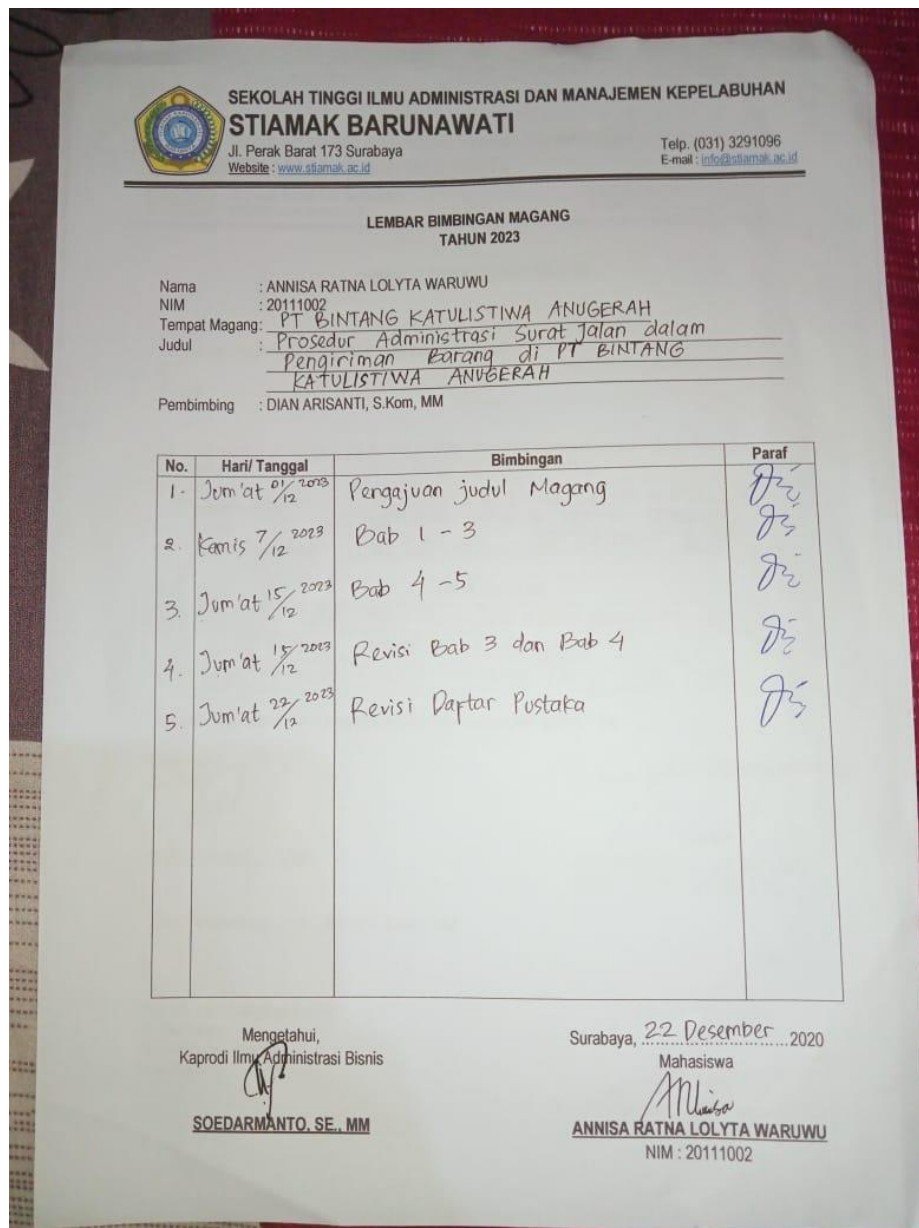 SEKOLAH TINGGI ILMU ADMINISTRASI DAN MANAJEMEN KEPELABUHAN
STIAMAK BARUNAWATI
Jl. Perak Barat 173 Surabaya
Telp. (031) 3291096
Website : www.stiamak.ac.id
E-mail : info@stiamak.ac.id
LEMBAR BIMBINGAN MAGANG
TAHUN 2023
Nama : ANNISA RATNA LOLYTA WARUWU
NIM : 20111002
Tempat Magang: PT BINTANG KATULISTIWA ANUGERAH
Judul : Prosedur Administrasi Surat Jalan dalam
Pengiriman Barang di PT BINTANG
KATULISTIWA ANUGERAH
Pembimbing : DIAN ARISANTI, S.Kom, MM
No. Hari/ Tanggal Bimbingan Paraf
1. Jum'at 01/12 2023 Pengajuan judul Magang
2. Kamis 7/12 2023 Bab 1 - 3
3. Jum'at 15/12 2023 Bab 4 - 5
4. Jum'at 15/12 2023 Revisi Bab 3 dan Bab 4
5. Jum'at 22/12 2023 Revisi Daptar Pustaka
Mengetahui,
Kaprodi Ilmu Administrasi Bisnis
SOEDARMANTO, SE., MM
Surabaya, 22 Desember 2020
Mahasiswa
ANNISA RATNA LOLYTA WARUWU
NIM : 20111002